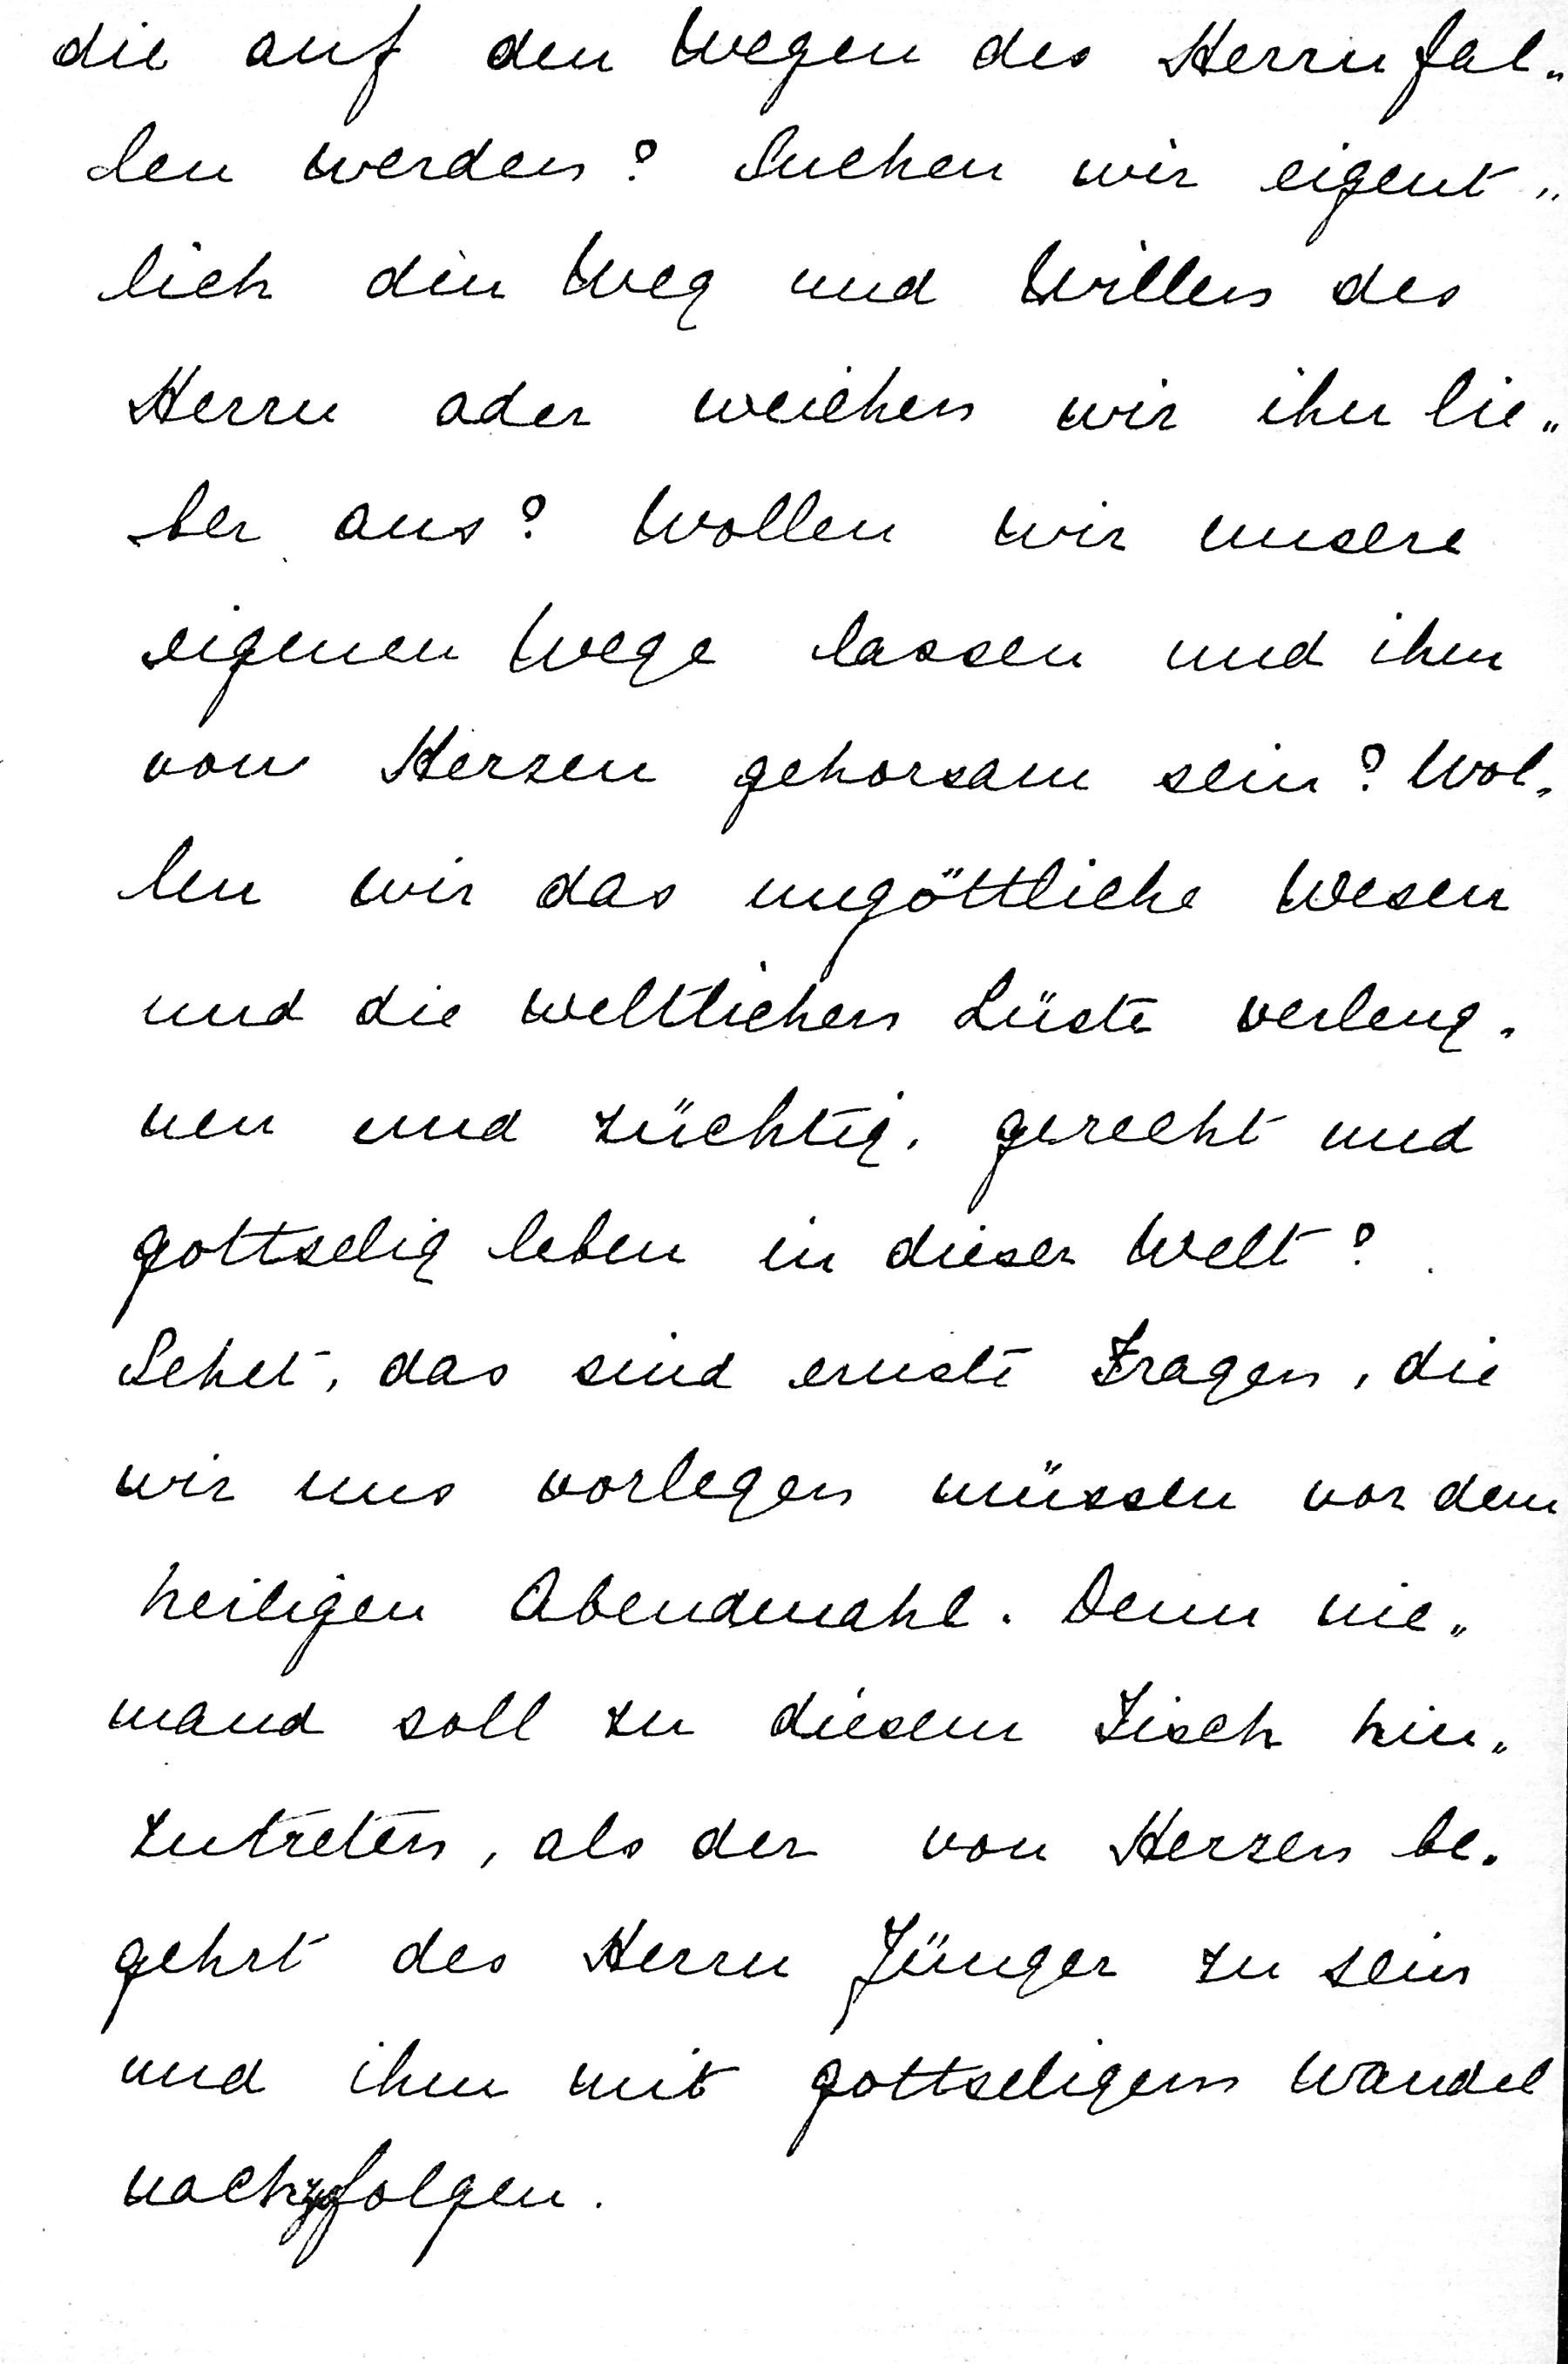 die auf den Wegen des Herrn fal„
len werden? Suchen wir eigent„
lich den Weg und Willen des
Herrn oder weichen wir ihm lie„
ber aus? Wollen wir unsere
eigenen Wege lassen und ihm
von Herzen gehorsam sein? Wol„
len wir das ungöttliche Wesen
und die weltlichen Lüste verleug„
nen und züchtig, gerecht und
gottselig leben in dieser Welt?
Sehet, das sind ernste Fragen, die
wir uns vorlegen müssen vor dem
heiligen Abendmahl. Denn nie„
mand soll zu diesem Tisch hin„
zutreten, als der von Herzen be„
gehrt des Herrn Jünger zu sein
und ihm mit gottseligem Wandel
nachzufolgen.